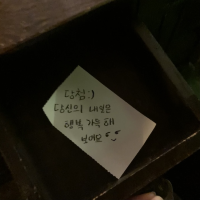 당첨:)
당신의 내일은
행복 가득해
보여요